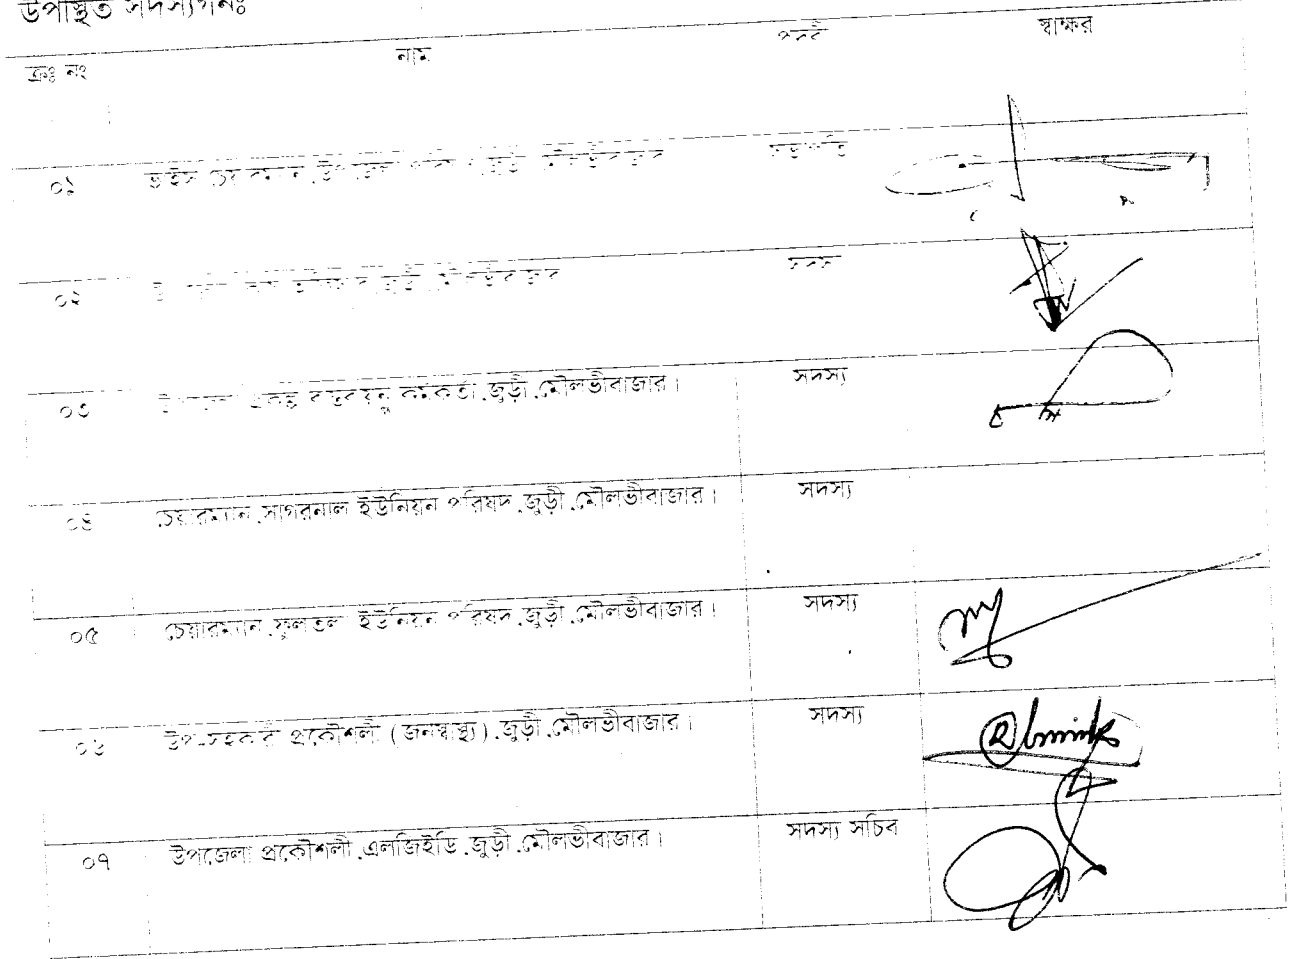 উপস্থিত সদস্যগনঃ
ক্রঃ নং নাম পদবী স্বাক্ষর
০১ ভাইস চেয়ারম্যান, উপজেলা পরিষদ, জুড়ী, মৌলভীবাজার সভাপতি
০২ জুড়ী, মৌলভীবাজার সদস্য
০৩ উপজেলা প্রকল্প বাস্তবায়ন কর্মকর্তা, জুড়ী, মৌলভীবাজার। সদস্য
০৪ চেয়ারম্যান, সাগরনাল ইউনিয়ন পরিষদ, জুড়ী, মৌলভীবাজার। সদস্য
০৫ চেয়ারম্যান, ফুলতলা ইউনিয়ন পরিষদ, জুড়ী, মৌলভীবাজার। সদস্য
০৬ উপ-সহকারী প্রকৌশলী (জনস্বাস্থ্য), জুড়ী, মৌলভীবাজার। সদস্য
০৭ উপজেলা প্রকৌশলী, এলজিইডি, জুড়ী, মৌলভীবাজার। সদস্য সচিব